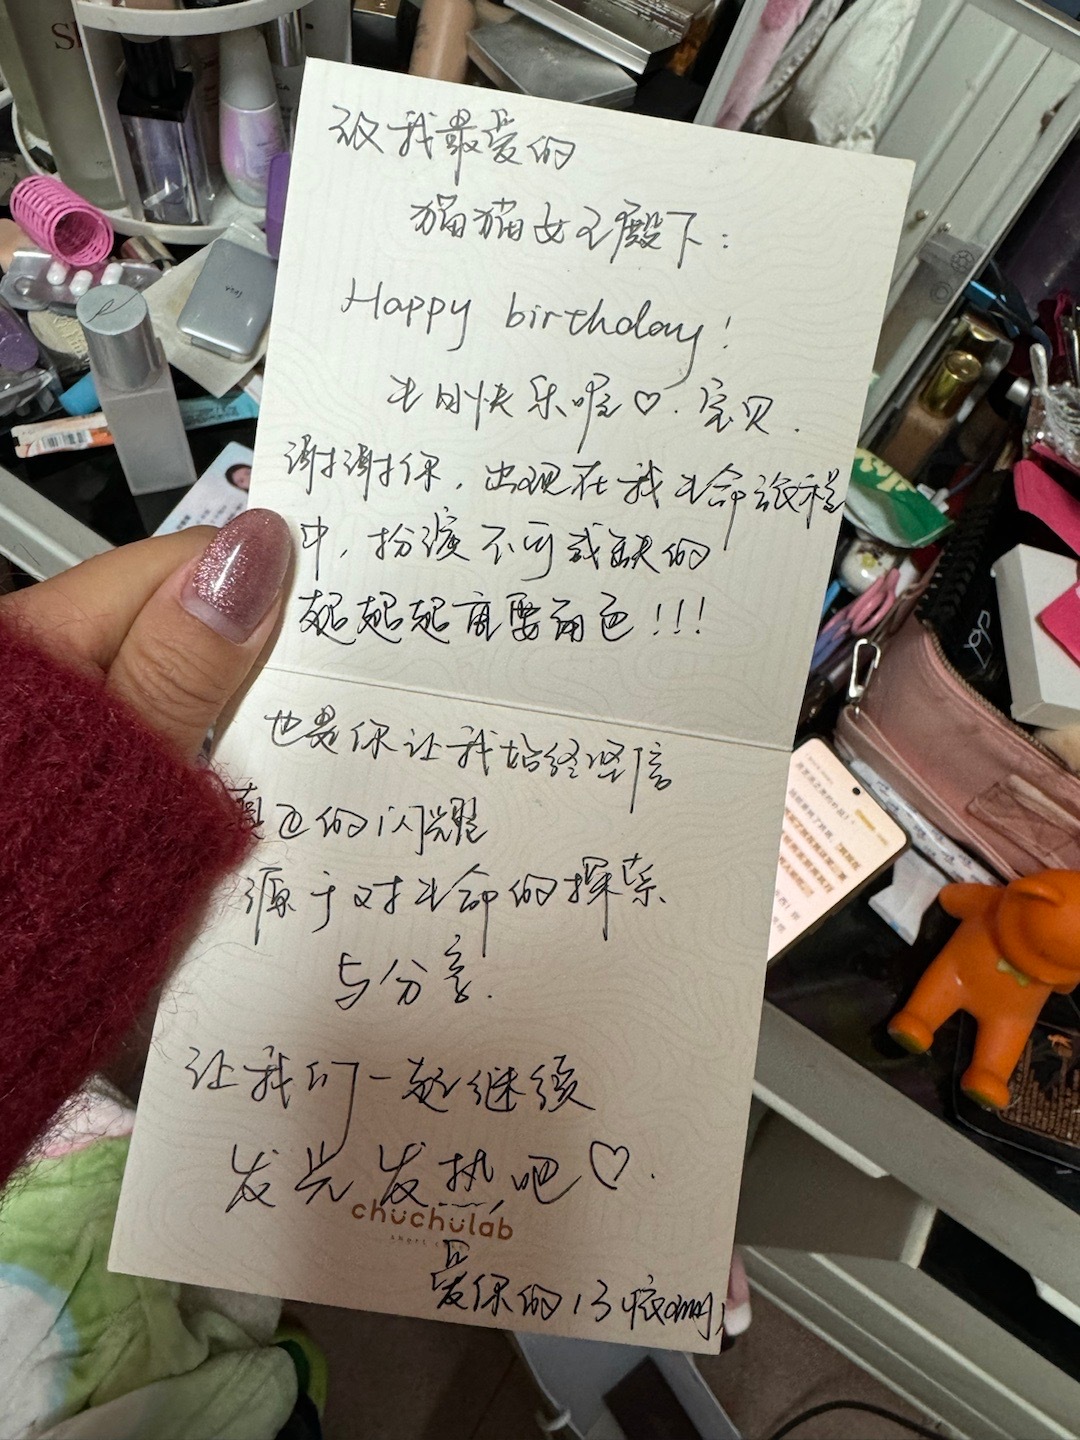 致我最爱的
猫猫女王殿下:
Happy birthday!
生日快乐喔♡. 宝贝.
谢谢你, 出现在我生命旅程
中, 扮演不可或缺的
超超超重要角色!!!
也是你让我始终坚信
真正的闪耀
源于对生命的探索
与分享.
让我们一起继续
发光发热吧♡.
chuchulab
爱你的